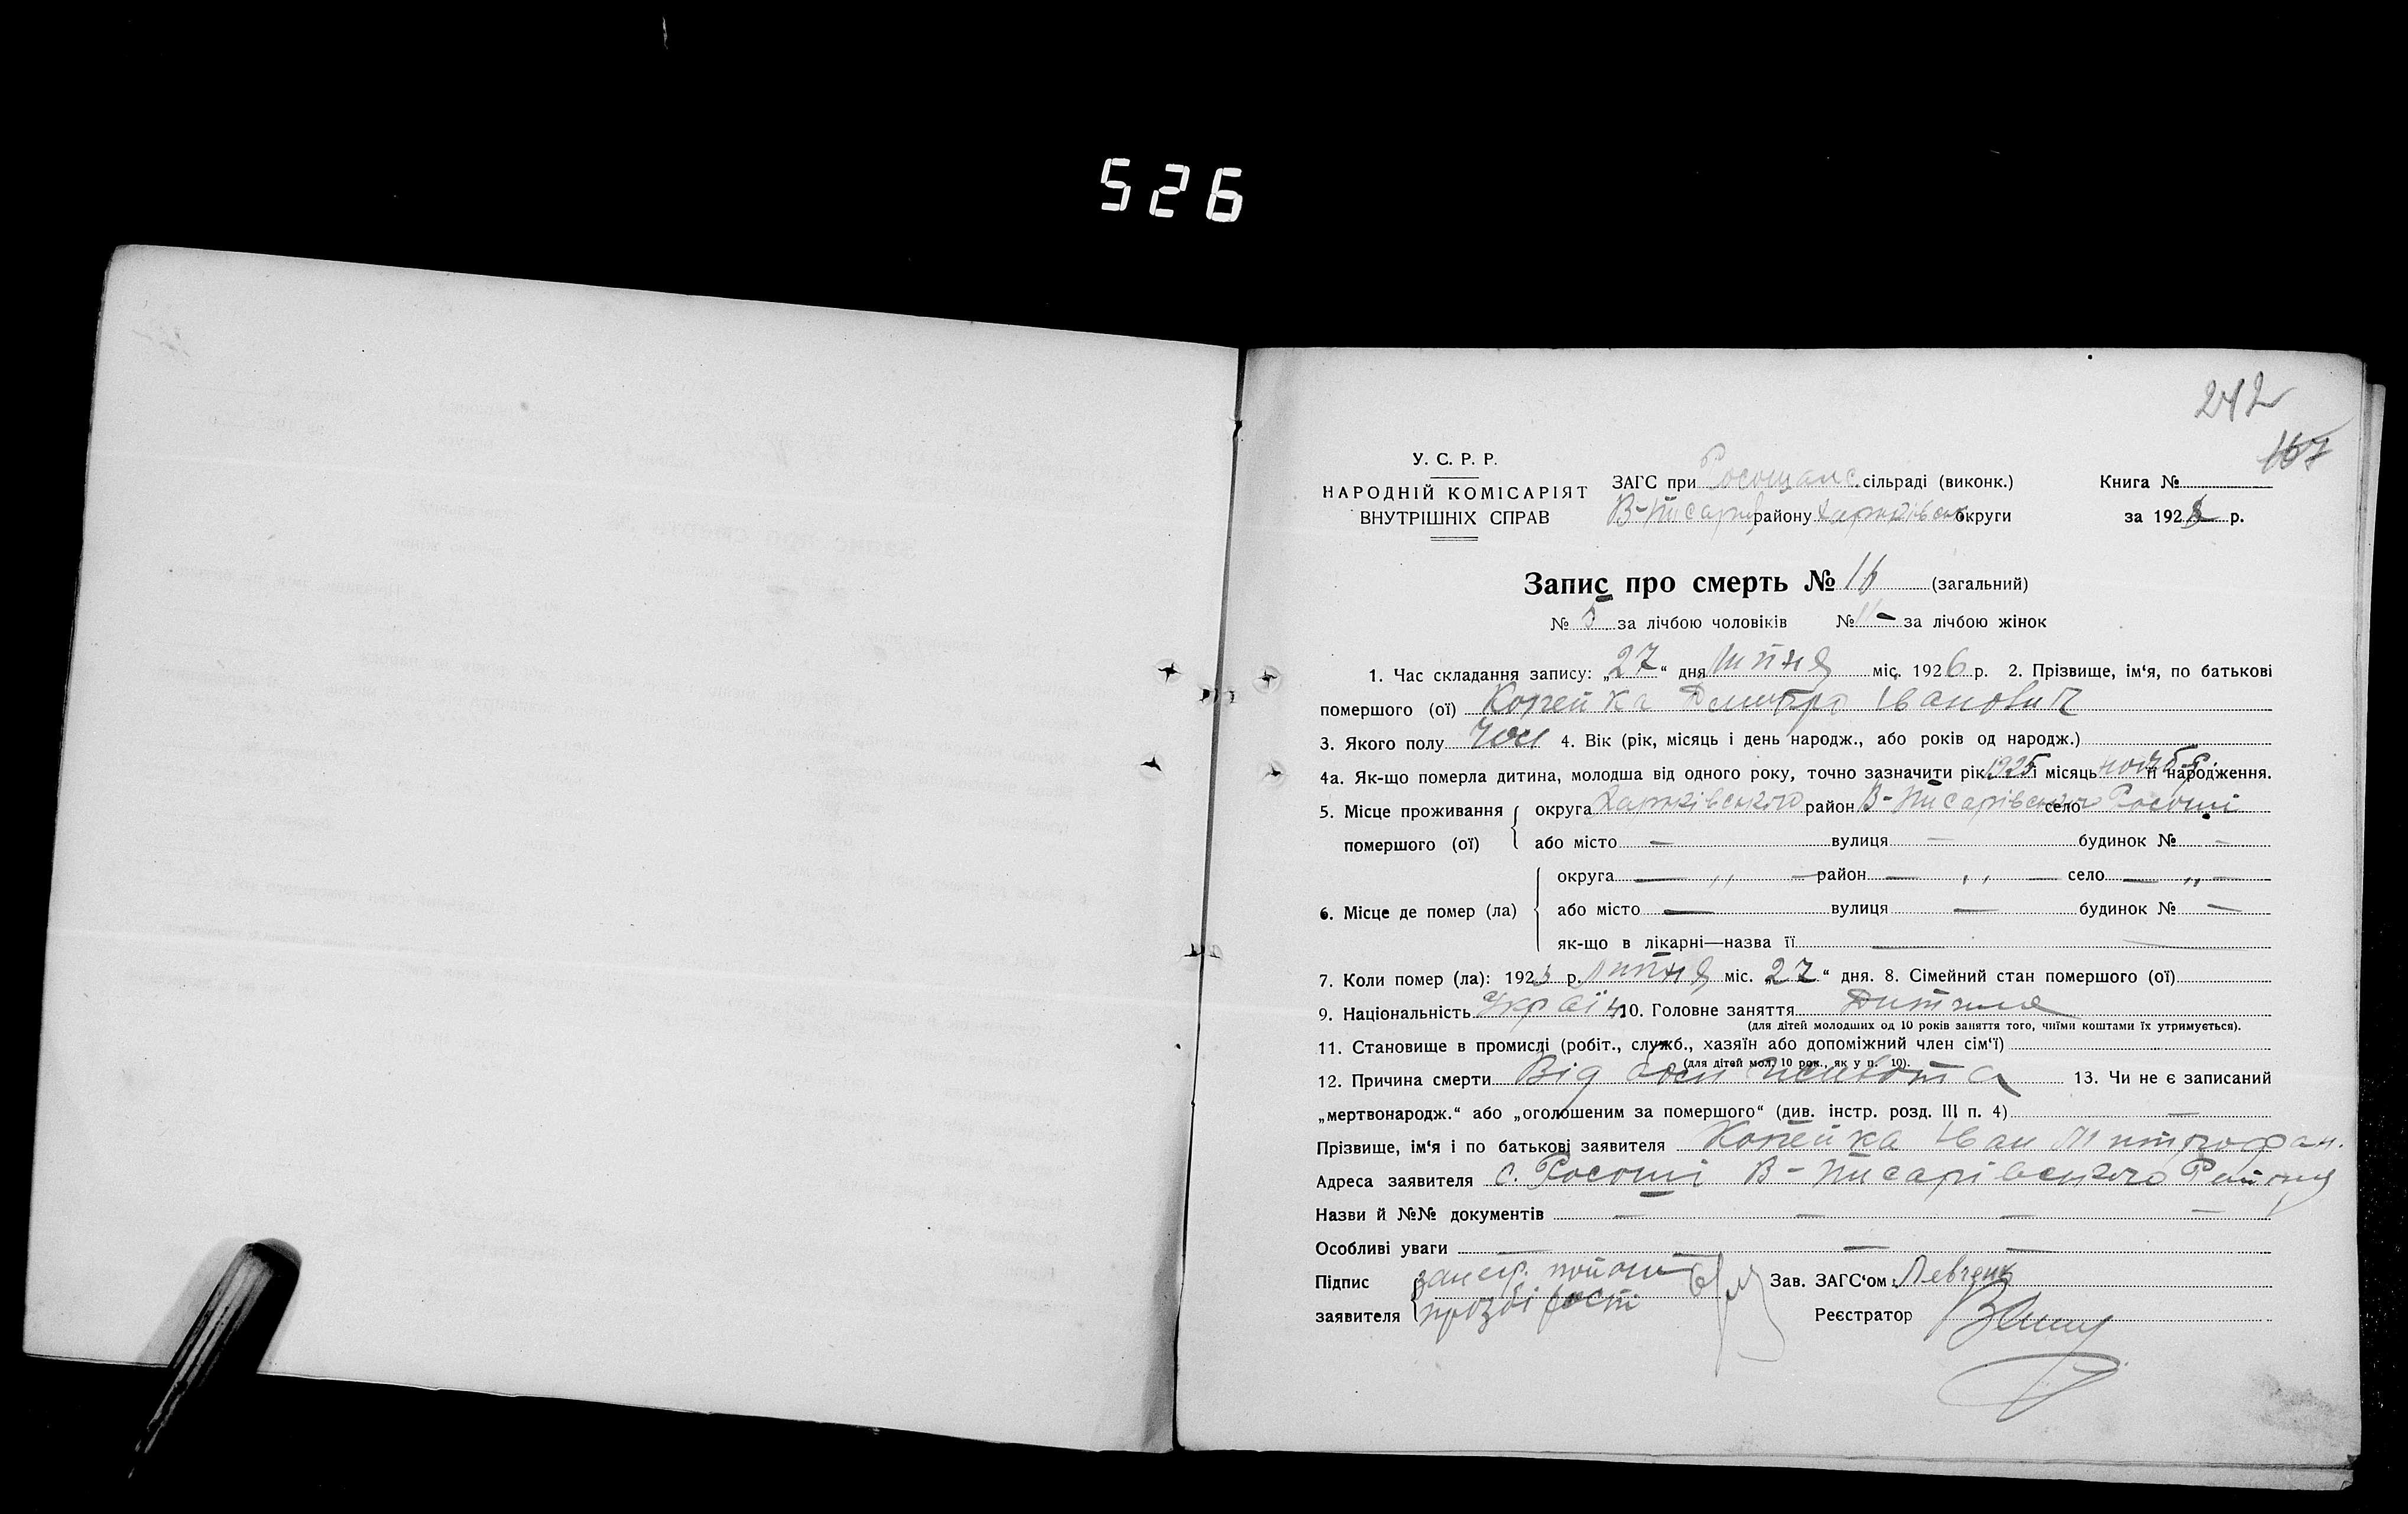 526
242
167
У. С. Р. Р.
НАРОДНІЙ КОМІСАРІЯТ
ВНУТРІШНІХ СПРАВ
ЗАГС при Росощанс. сільраді (виконк.)
В-Писарів району Харківськ округи
Книга №
за 192 р.
Запис про смерть № 16 (загальний)
№ 5 за лічбою чоловіків № — за лічбою жінок
1. Час складання запису: „27" дня Липня міс. 1926 р. 2. Прізвище, ім'я, по батькові
помершого (ої) Копейка Дмитро Іванович
3. Якого полу чол 4. Вік (рік, місяць і день народж., або років од народж.)
4а. Як-що померла дитина, молодша від одного року, точно зазначити рік 1925 і місяць її народження.
5. Місце проживання помершого (ої) округа Харківського район В-Писарівського село Росоші
або місто — вулиця — будинок № —
6. Місце де помер (ла) округа — „ — район — „ — село — „ —
або місто — вулиця — будинок № —
як-що в лікарні—назва її —
7. Коли помер (ла): 192 р. Липня міс. „27" дня. 8. Сімейний стан помершого (ої)
9. Національність Україн 10. Головне заняття Дитина
(для дітей молодших од 10 років заняття того, чиїми коштами їх утримується).
11. Становище в промислі (робіт., служб., хазяїн або допоміжний член сім'ї)
(для дітей мол. 10 рок., як у п. 10).
12. Причина смерти Від живота 13. Чи не є записаний
„мертвонародж." або „оголошеним за помершого" (див. інстр. розд. III п. 4) —
Прізвище, ім'я і по батькові заявителя Копейка Іван Митрофан.
Адреса заявителя с. Росоші В-Писарівського Району
Назви й №№ документів — — — —
Особливі уваги — — — —
Підпис заявителя
Зав. ЗАГС'ом: Левченко
Реєстратор